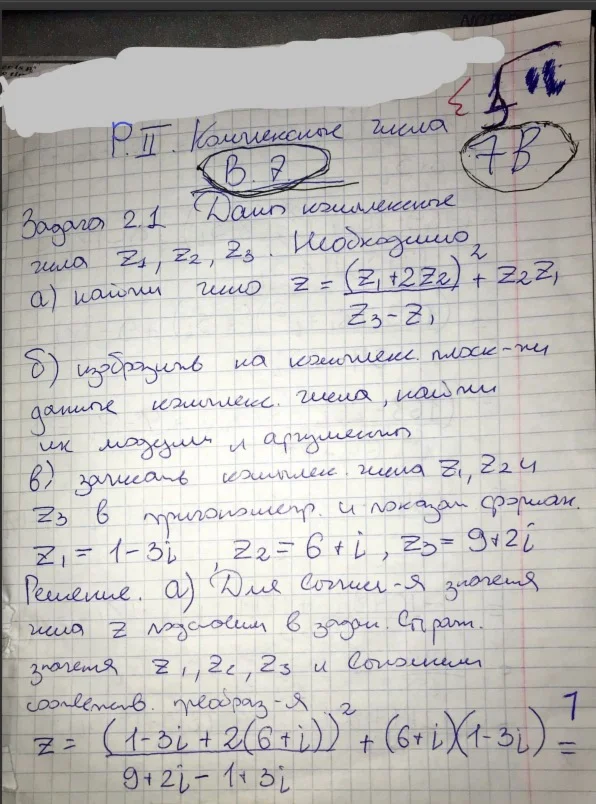 Р.II. Комплексные числа
В. 7.
7 В
Задача 2.1 Даны комплексные
числа z₁, z₂, z₃. Необходимо
а) найти число z = (z₁+2z₂)² / (z₃-z₁) + z₂z₁
б) изобразить на комплекс. плоск-ти
данные комплекс. числа, найти
их модули и аргументы
в) записать комплек. числа z₁, z₂ и
z₃ в тригонометр. и показат формах.
z₁ = 1-3i, z₂ = 6+i, z₃ = 9+2i
Решение. а) Для вычисл-я значетя
числа z подставим в задан. выраж.
значетя z₁, z₂, z₃ и выполним
соответств. преобраз-я
z = (1-3i + 2(6+i))² / (9+2i-1+3i) + (6+i)(1-3i) =
1